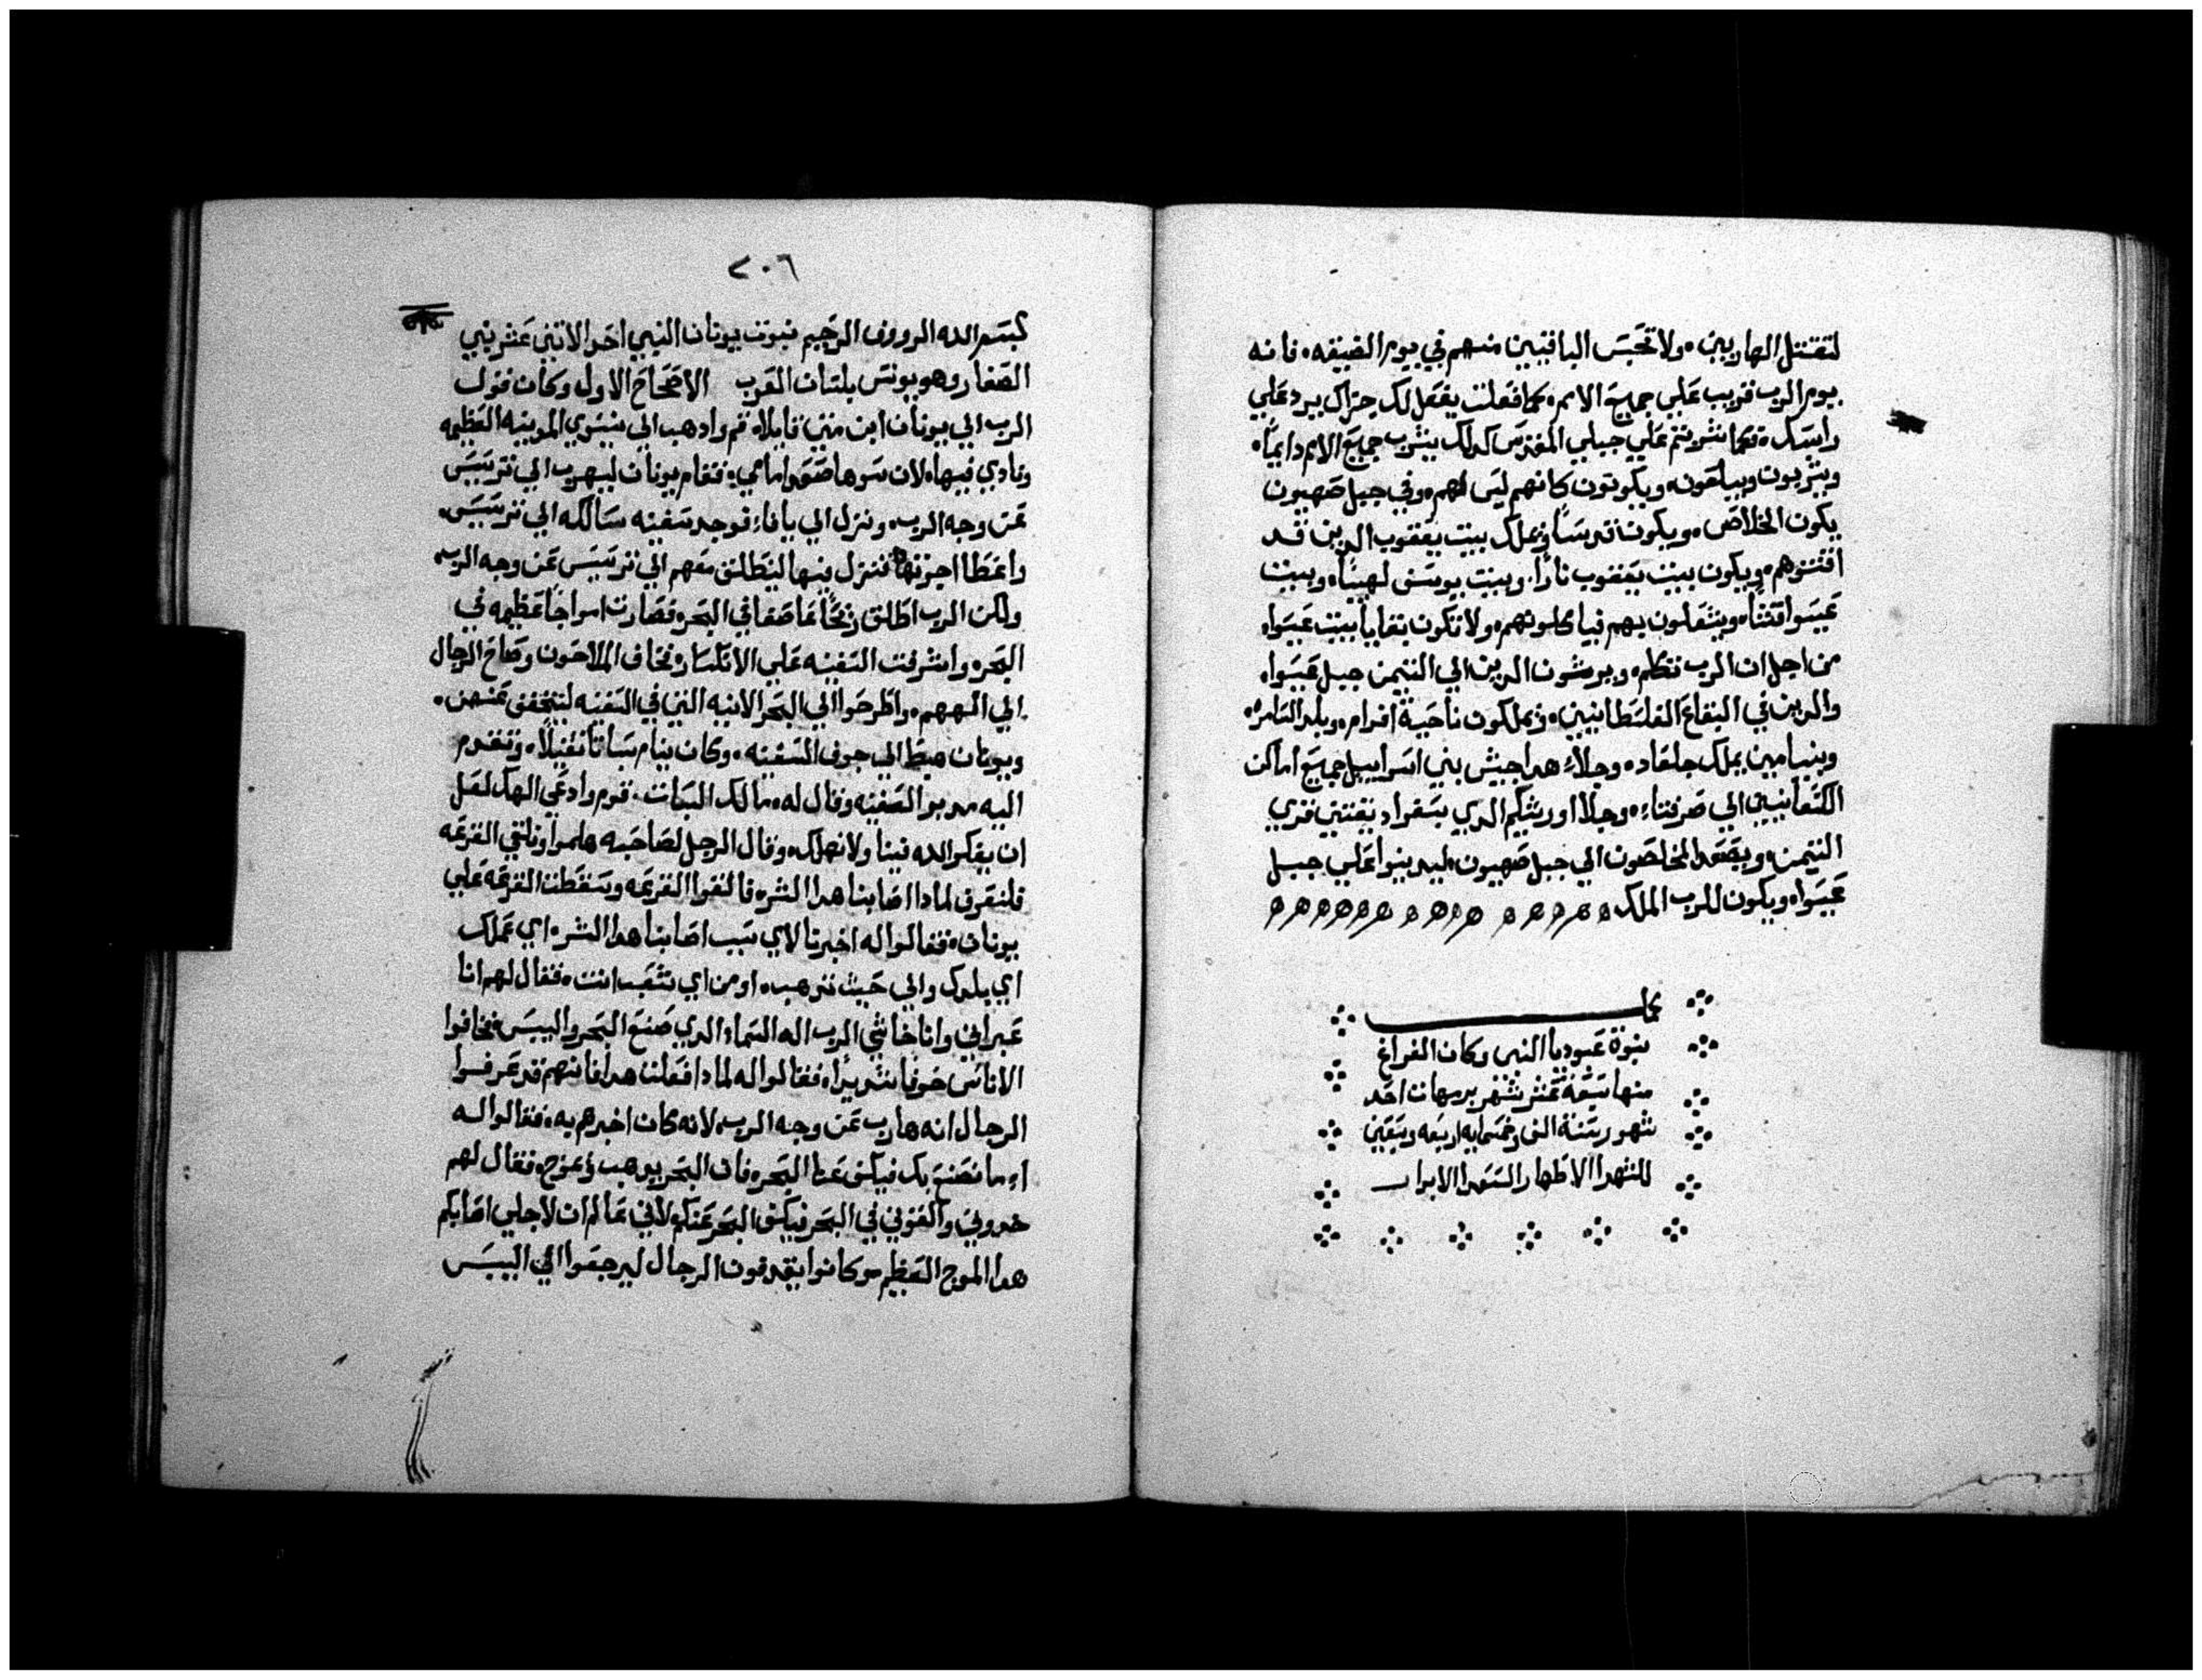 لتقتل الهاربين ولا تحبس الباقيين منهم في يوم الضيقه فانه
يوم الرب قريب علي جميع الامم كما فعلت يفعل لك جزاك يرد علي
راسك فكما شربتم علي جبلي المقدس كدلك يشرب جميع الامم دايماً
ويشربون ويبلعون ويكونون كانهم ليس لهم وفي جبل صهيون
يكون الخلاص ويكون قدساً ويملك بيت يعقوب الدين قد
اقتنوهم ويكون بيت يعقوب ناراً وبيت يوسف لهيباً وبيت
عيسوا قشاً ويشعلون بهم فياكلونهم ولا تكون بقايا بيت عيسوا
من اجل ان الرب تكلم ويرثون الدين الي التيمن جبل عيسوا
والدين في البقاع الفلسطانيين ويملكون ناحية افرام وبلد السامره
وبنيامين يملك جلعاد وجلاء هدا جيش بني اسراييل جميع اماكن
الكنعانيين الي صرفتاء وجلاء اورشليم الدي بسفراد يقتني قري
التيمن ويصعد المخلصون الي جبل صهيون ليدينوا علي جبل
عيسوا ويكون للرب الملك
كملت
نبوة عبوديا النبي وكان الفراغ
منها تسعة عشر شهر برمهات احد
شهور سنة الف وخمسمايه اربعه وتسعين
للشهدا الاطهار السعدا الابرار
٢٠٦
بسم الله الرووف الرحيم نبوت يونان النبي احد الاتني عشر نبي
الصغار وهو يونس بلسان العرب الاصحاح الاول وكان قول
الرب الي يونان ابن متي قايلاً قم وادهب الي نينوي المدينه العظيمه
ونادي فيها لان شرها صعد امامي فقام يونان ليهرب الي ترسيس
من وجه الرب ونزل الي يافاء فوجد سفينه سالكه الي ترسيس
واعطا اجرتها فنزل فيها لينطلق معهم الي ترسيس من وجه الرب
ولكن الرب اطلق ريحاً عاصفا في البحر فصارت امواجاً عظيمه في
البحر واشرفت السفينه علي الانكسار وخاف الملاحون وصاح الرجال
الي الههم واطرحوا الي البحر الانيه التي في السفينه لتتخفف عنهم
ويونان هبط الي جوف السفينه وكان ينام سباتاً ثقيلاً وتقدم
اليه مدبر السفينه وقال له مالك السبات قوم وادعي الهك لعل
ان يفكر الله فينا ولا نهلك وقال الرجل لصاحبه هلموا ونلقي القرعه
فلنعرف لمادا اصابنا هدا الشر فالقوا القرعه وسقطت القرعه علي
يونان فقالوا له اخبرنا لاي سبب اصابنا هدا الشر اي عملك
اي بلدك والي حيث تدهب او من اي شعب انت فقال لهم انا
عبراني وانا خاشي الرب اله السماء الدي صنع البحر واليبس فخافوا
الاناس خوفا شديداً فقالوا له لمادا فعلت هدا فانهم قد عرفوا
الرجال انه هارب من وجه الرب لانه كان اخبرهم به فقالوا له
اء ما نصنع بك فيكف عنا البحر فان البحر يدهب ويموج فقال لهم
خدوني والقوني في البحر فيكف البحر عنكم لاني عالم ان لاجلي اصابكم
هدا الموج العظيم وكانوا يقدفون الرجال ليرجعوا الي اليبس